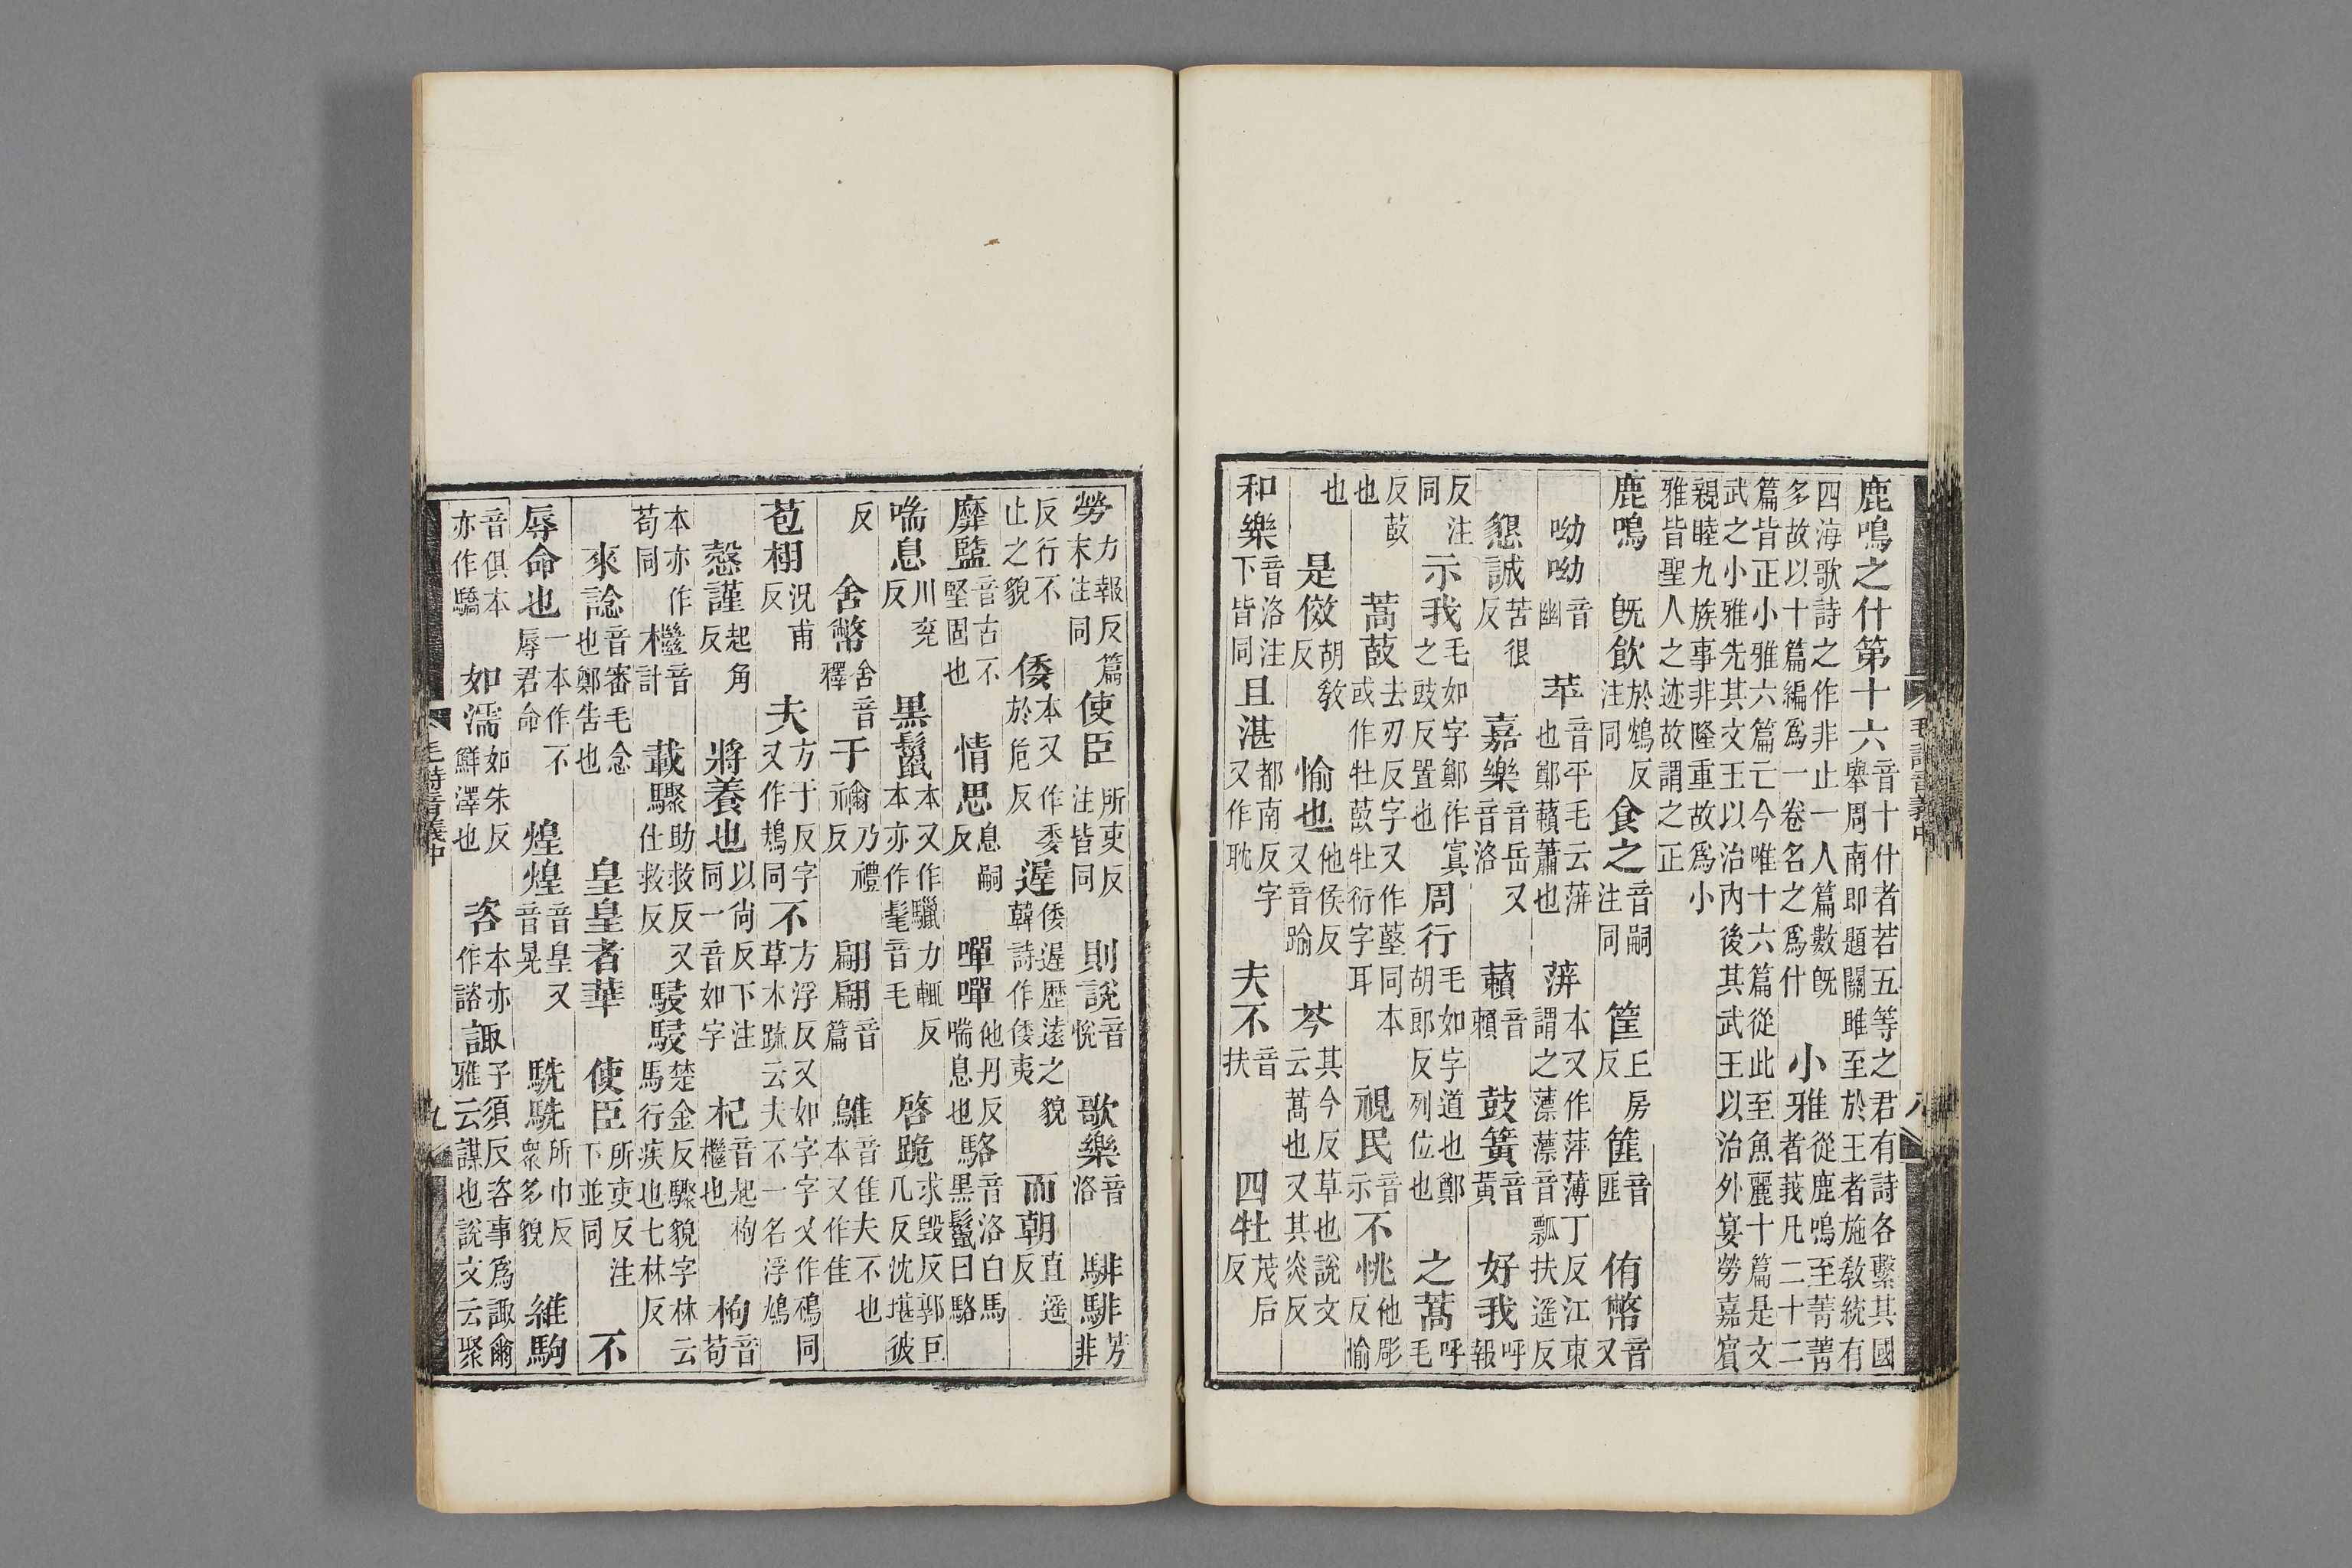 鹿鳴之什第十六音十什者若五等之君有詩各繫其國舉周南即題關雎至於王者施敎統有
四海歌詩之作非止一人篇數旣多故以十篇編爲一卷名之爲什小雅從鹿鳴至菁菁者莪凡二十二
篇皆正小雅六篇亡今唯十六篇從此至魚麗十篇是文武之小雅先其文王以治內後其武王以治外宴勞嘉賓
親睦九族事非隆重故爲小雅皆聖人之迹故謂之正
鹿鳴 旣飲於鴆反注同食之音嗣注同筐丘房反篚音匪侑幣音又
呦呦音幽苹音平毛云蓱也鄭藾蕭也蓱本又作萍薄丁反江東謂之薸薸音瓢扶遥反
懇誠苦很反嘉樂音岳又音洛藾音賴鼓簧音黃好我呼報
反注同示我毛如字鄭作寘之豉反置也周行毛如字道也鄭胡郎反列位也之蒿呼毛
反菣也蒿菣去刃反字又作藖同本或作牡菣牡衍字耳視民音示不恌他彫反愉
也是傚胡敎反愉也他侯反又音踰芩其今反草也說文云蒿也又其炎反
和樂音洛注下皆同且湛都南反字又作耽夫不音扶四牡茂后反
毛詩音義中 八
勞方報反篇末注同使臣所吏反注皆同則說音悅歌樂音洛騑騑芳非
反行不止之貌倭本又作委於危反遲倭遲歷遠之貌韓詩作倭夷而朝直遥反
靡盬音古不堅固也情思息嗣反嘽嘽他丹反喘息也駱音洛白馬黑鬛曰駱
喘息川兖反黒鬛本又作力輒反本亦作髦音毛啓跪求毀反郭巨几反沈堪彼
反舍幣舍音釋于禰乃禮反翩翩音篇鵻音隹夫不也本又作隹
苞栩況甫反夫方于反字又作鳺同不方浮反又如字字又作鴀同草木疏云夫不一名浮鳩
慤謹起角反將養也以尚反下注同一音如字杞音起枸檵也枸音苟
本亦作苟同檵音計載驟助救反又仕救反駸駸楚金反驟貌字林云馬行疾也七林反
來諗音審毛念也鄭告也皇皇者華 使臣所吏反注下並同不
辱命也一本作不辱君命煌煌音皇又音晃駪駪所巾反衆多貌維駒
音俱本亦作驕如濡如朱反鮮澤也咨本亦作諮諏子須反咨事爲諏爾雅云謀也說文云聚
毛詩音義中 九